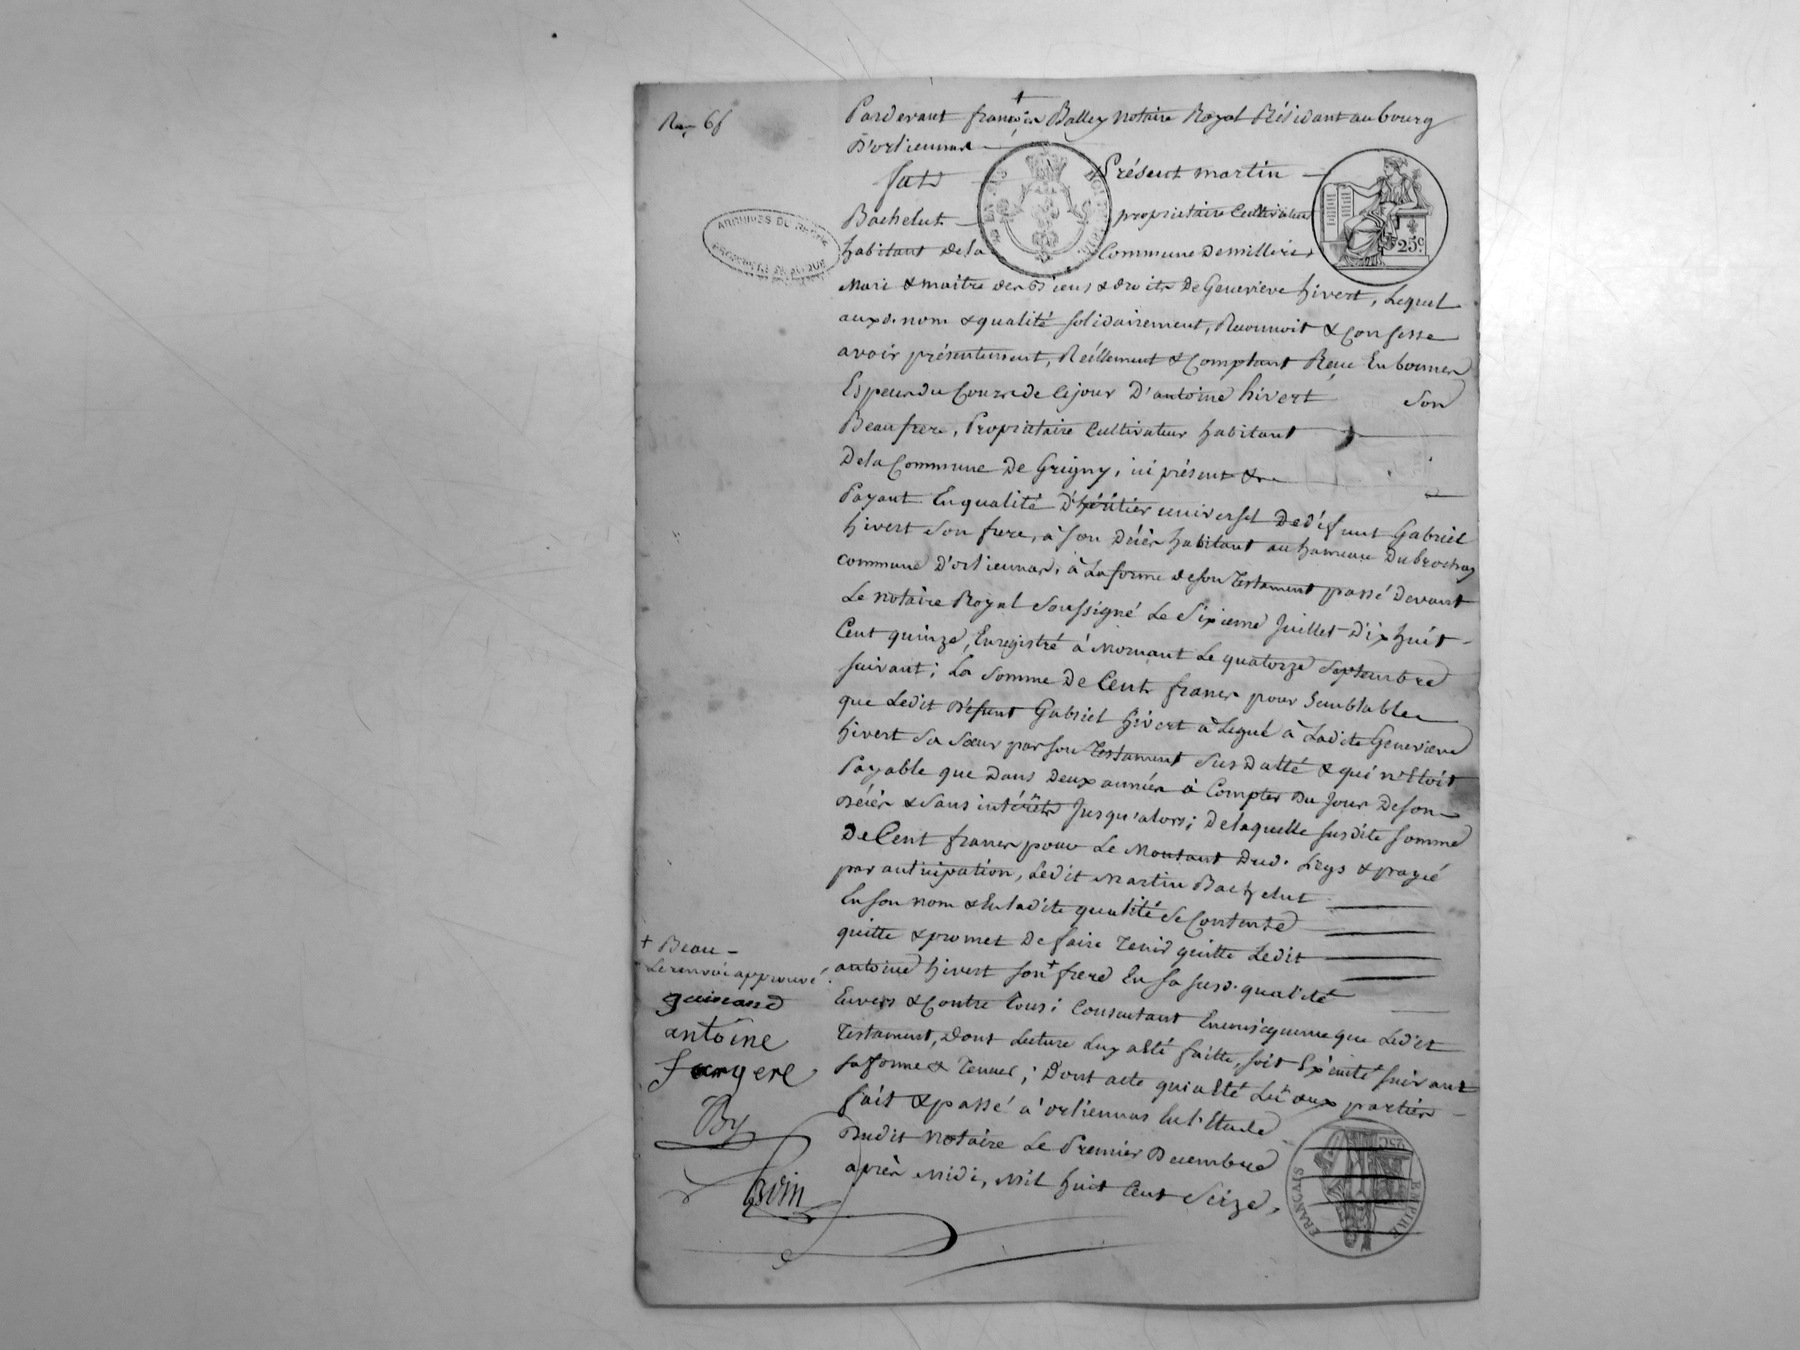 Pardevant françois Balley notaire Royal Résidant au bourg
D'orliennas
fut Présent martin
Bachelut propriétaire Cultivateur
habitant de la Commune de millerie
Mari & maitre des Biens & droits de Genevieve hivert, Lequel
auxd. nom & qualité solidairement, Reconnoit & Confesse
avoir présentement, Réellement & Comptant Reçu En bonnes
Espèces du Cours de ce jour D'antoine hivert son
Beaufrere, Propriétaire Cultivateur habitant
De la Commune de Grigny, ici présent &
Payant En qualité d'héritier universel De défunt Gabriel
hivert son frere, à son décès habitant au hameau Du
commune d'orliennas, à La forme de son Testament passé devant
Le notaire Royal soussigné Le Sixieme Juillet Dix huit
Cent quinze, Enregistré à Mornant Le quatorze Septembre
suivant; La Somme De Cent francs pour Semblable
que Ledit Défunt Gabriel hivert à Légué à Ladite Genevieve
hivert sa sœur par son Testament Sus Datté & qui n'Etoit
Payable que Dans Deux années à Compter Du Jour De son
décès & sans intérêts Jusqu'alors; De laquelle susdite somme
De Cent francs pour Le Montant Dud. Legs & payé
par anticipation, Ledit Martin Bachelut
En son nom & En ladite qualité se Contente
quitte & promet De faire Tenir quitte Ledit
antoine hivert son + frere En sa susd. qualité
Envers & Contre Tous; Consentant En conséquence que Ledit
Testament, Dont Lecture Luy a Eté faitte, soit Exécuté suivant
sa forme & Teneur; Dont acte qui a Eté Lû aux parties
fait & passé à orliennas En l'Etude
Dudit notaire Le Premier Decembre
après Midi, Mil huit Cent Seize,
+ Beau
Le renvoi approuvé
antoine
By
ARCHIVES DU RHONE
25c
EMPIRE FRANÇAIS